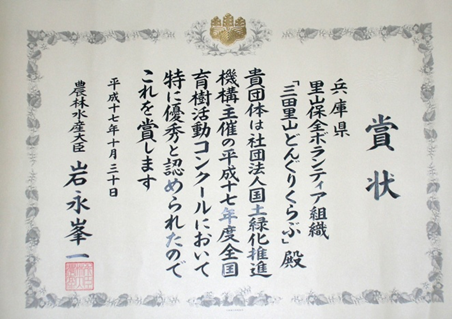 賞状
兵庫県
里山保全ボランティア組織
「三田里山どんぐりくらぶ」殿
貴団体は社団法人国土緑化推進
機構主催の平成十七年度全国
育樹活動コンクールにおいて
特に優秀と認められたので
これを賞します
平成十七年十月三十日
農林水産大臣 岩永峯一